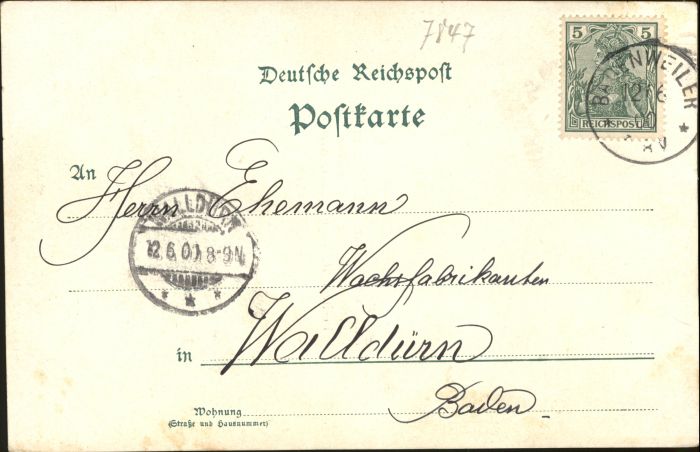 7847
5 5
REICHSPOST
BADENWEILER
12 6
8 N
Deutsche Reichspost
Postkarte
An Herrn Ehemann
WALLDÜRN
12.6.00 8-9N
Wachsfabrikanten
in Walldürn
Baden
Wohnung
(Straße und Hausnummer)